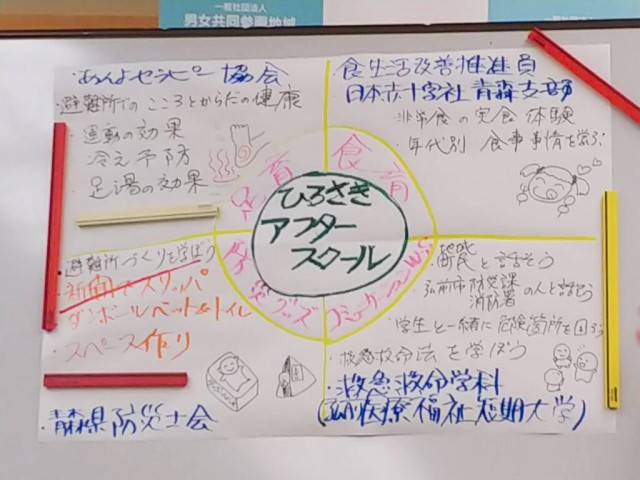 一般社団法人
男女共同参画地域
一般社団法人
あんよセラピー協会
・避難所での こころとからだの健康
・運動の効果
冷え予防
足湯の効果
食生活改善推進員
日本赤十字社 青森支部
・非常食の実食体験
・年代別 食事事情を学ぶ
足育
食育
ひろさき
アフター
スクール
防災グッズ
コミュニケーションWS
・避難所づくりを学ぼう
・新聞でスリッパ
・ダンボールベット&トイレ
・スペース作り
青森県防災士会
・町民と話そう
・弘前市防災課
消防署 の人と話そう
・学生と一緒に危険箇所を回ろう
・救急救命法を学ぼう
・救急救命学科
(弘前医療福祉短期大学)